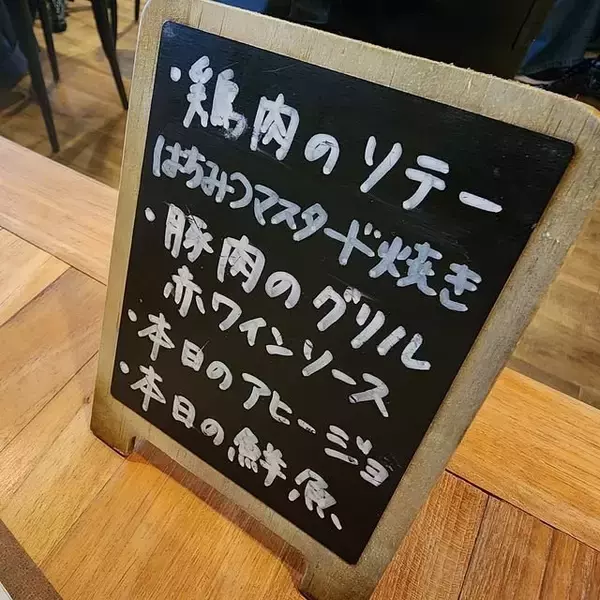 ・鶏肉のソテー
はちみつマスタード焼き
・豚肉のグリル
赤ワインソース
・本日のアヒージョ
・本日の鮮魚